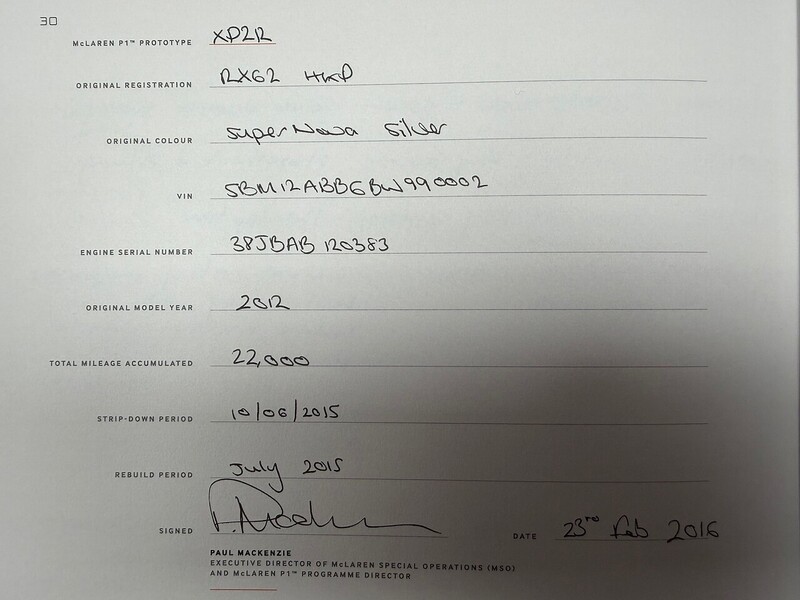 30
McLAREN P1™ PROTOTYPE XP2R
ORIGINAL REGISTRATION RX62 HKP
ORIGINAL COLOUR SuperNova Silver
VIN SBM12ABB6BW990002
ENGINE SERIAL NUMBER 38JBAB 120383
ORIGINAL MODEL YEAR 2012
TOTAL MILEAGE ACCUMULATED 22,000
STRIP-DOWN PERIOD 10/06/2015
REBUILD PERIOD July 2015
SIGNED DATE 23rd Feb 2016
PAUL MACKENZIE
EXECUTIVE DIRECTOR OF McLAREN SPECIAL OPERATIONS (MSO)
AND McLAREN P1™ PROGRAMME DIRECTOR